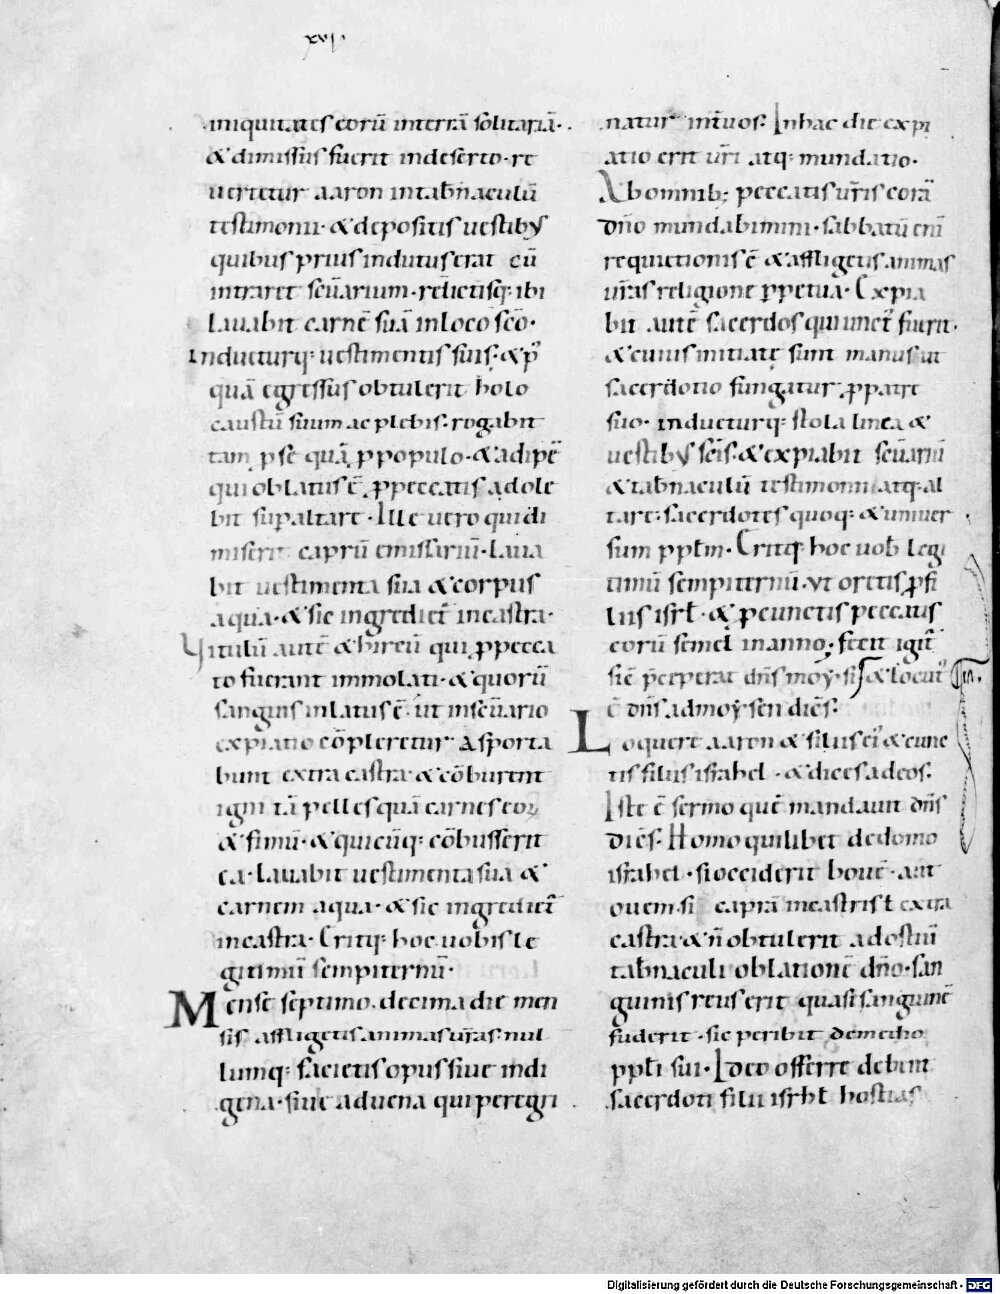 xvi.
iniquitates eorū in terrā solitariā.
& dimissus fuerit in deserto. re
uertetur aaron in tab̄naculū
testimonii. & depositis uestib;
quibus prius indutus erat cū
intraret sc̄uarium. relictisq: ibi
lauabit carnē suā in loco sc̄o.
Indueturq: uestimentis suis. & p̄
quā egressus obtulerit holo
caustū suum ac plebis. rogabit
tam p se quā p populo. & adipē
qui oblatus ē p peccatis adole
bit sup altare. Ille uero qui di
miserit caprū emissariū. laua
bit uestimenta sua & corpus
aqua. & sic ingrediet̄ in castra.
Vitulū autē & hircū qui p pecca
to fuerant immolati. & quorū
sanguis inlatus ē. ut in sc̄uario
expiatio cōpleretur asporta
bunt extra castra. & cōburent
igni tā pelles quā carnes eoꝝ
& fimū. & quicūq: cōbusserit
ea. lauabit uestimenta sua &
carnem aqua. & sic ingrediet̄
in castra. Eritq: hoc uobis le
gitimū sempiternū.
Mense septimo. decima die men
sis affligetis animas ur̄as. nul
lumq: facietis opus siue indi
gena. siue aduena qui peregri
natur int̄ uos. In hac die expi
atio erit ur̄i atq: mundatio.
Ab omnib; peccatis ur̄is corā
dn̄o mundabimini. sabbatū eni
requietionis ē & affligetis animas
ur̄as religione ppetua. Expia
bit autē sacerdos qui unct̄ fuerit.
& cuius initiate sunt manus ut
sacerdotio fungatur p patre
suo. indueturq: stola linea &
uestib; sc̄is. & expiabit sc̄uariū
& tab̄naculū testimonii atq: al
tare. sacerdotes quoq: & uniuer
sum pplm. Eritq: hoc uob legi
timū sempiternū. ut oretis p fi
liis isrl. & p cunctis peccatis
eorū semel in anno. fecit igit̄
sic p̄ceperat dn̄s moysi. & locut̄
ē dn̄s ad moysen dicēs.
Loquere aaron & filiis ei & cunc
tis filiis israhel. & dices ad eos.
Iste ē sermo quē mandauit dn̄s
dicēs. Homo quilibet de domo
israhel. si occiderit bouē. aut
ouem. si caprā in castris ł extra
castra. & n̄ obtulerit ad ostiū
tab̄naculi oblationē dn̄o. san
guinis reus erit quasi sanguinē
fuderit. sic peribit de medio
ppłi sui. Ideo offerre debent
sacerdoti filii isrhł hostias
Digitalisierung gefördert durch die Deutsche Forschungsgemeinschaft - DFG